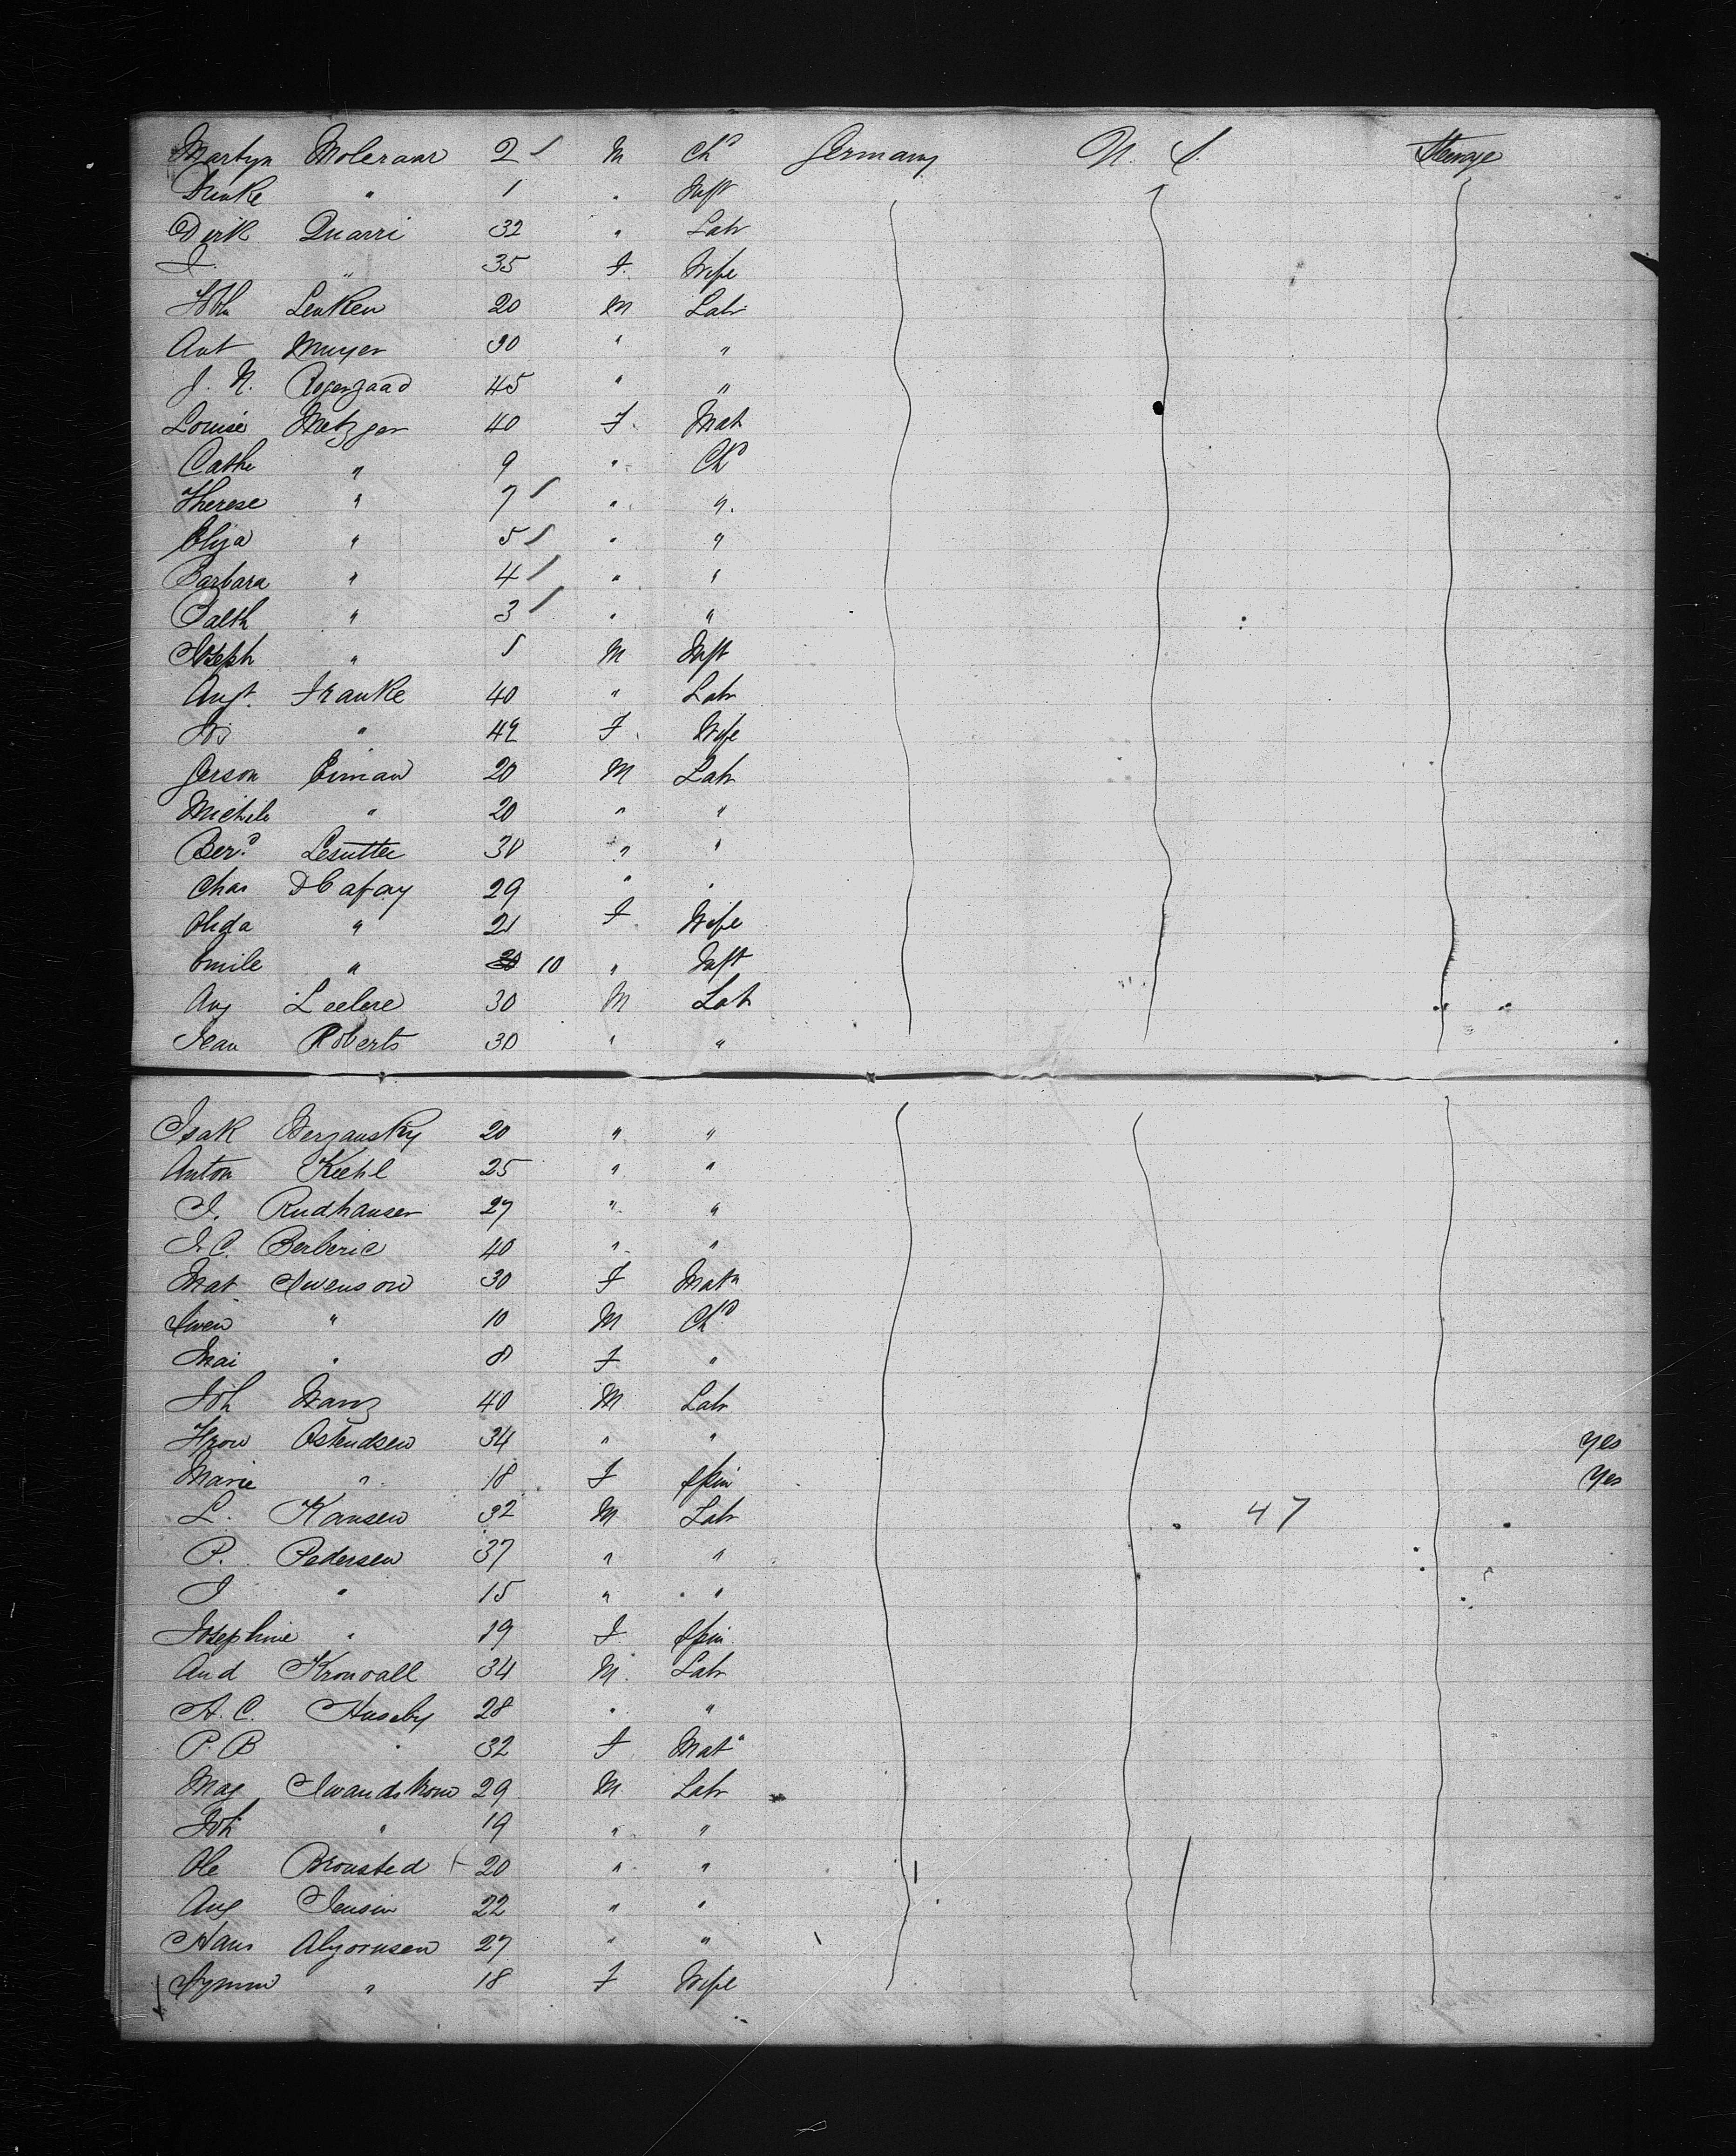 Martyn Moleraar 2 / M Chd Germany U. S. Steerage
" 1 " Inft
Dirk Quarri 32 " Labr
I. " 35 F. Wife
Joh Lenken 20 M Labr
Ant Muyer 30 " "
J. N. 45 " "
Louise Metzger 40 F. Mat
Cathe " 9 " Chd
Therese " 7 / " "
Eliza " 5 / " "
Barbara " 4 / " "
Balth " 3 / " "
Joseph " 1 M Inft
Augt. Franke 40 " Labr
Jos " 42 F. Wife
Gerson Eiman 20 M Labr
Michele " 20 " "
Berd. Lesutter 30 " "
Chas DCafay 29 " "
Alida " 21 F Wife
Emile " 10 " Inft
Aug Leclere 30 M Lab
Jean Roberts 30 " "
Isak 20 " "
Anton Kiehl 25 " "
J. Rudhauser 27 " "
J. C. Berberic 40 " "
Mat Swenson 30 F Matn
Swen " 10 M Chd
Mai " 8 F "
Joh 40 M Labr
Ostendsen 34 " " yes
Marie " 18 F Spin yes
L. Hansen 32 M Labr 47
P. Pedersen 37 " "
J " 15 " "
Josephine " 19 F Spin
And Kronvall 34 M. Labr
A. C. Huseby 28 " "
P. B " 32 F Matn
Mag Swandstrom 29 M Labr
Joh " 19 " "
Ole Bronsted 20 " "
Aug Jensen 22 " "
Hans 27 " "
" 18 F Wife